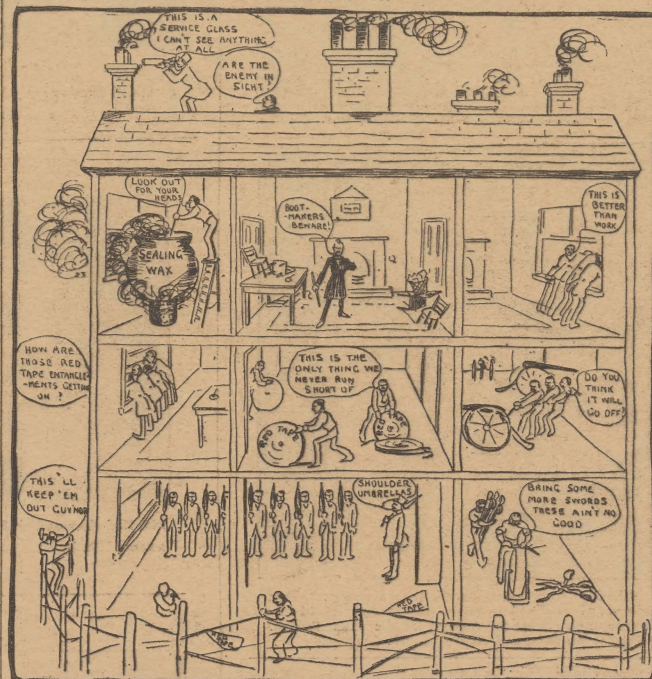 THIS IS A
SERVICE GLASS
I CAN'T SEE ANYTHING
AT ALL
ARE THE
ENEMY IN
SIGHT?
LOOK OUT
FOR YOUR
HEADS
SEALING
WAX
BOOT-
-MAKERS
BEWARE!
THIS IS
BETTER
THAN
WORK
HOW ARE
THOSE RED
TAPE ENTANGLE-
-MENTS GETTING
ON?
THIS IS THE
ONLY THING WE
NEVER RUN
SHORT OF
RED TAPE
RED TAPE
DO YOU
THINK
IT WILL
GO OFF?
THIS'LL
KEEP 'EM
OUT GUVNOR
SHOULDER
UMBRELLAS
BRING SOME
MORE SWORDS
THESE AIN'T NO
GOOD
RED
TAPE
RED
TAPE